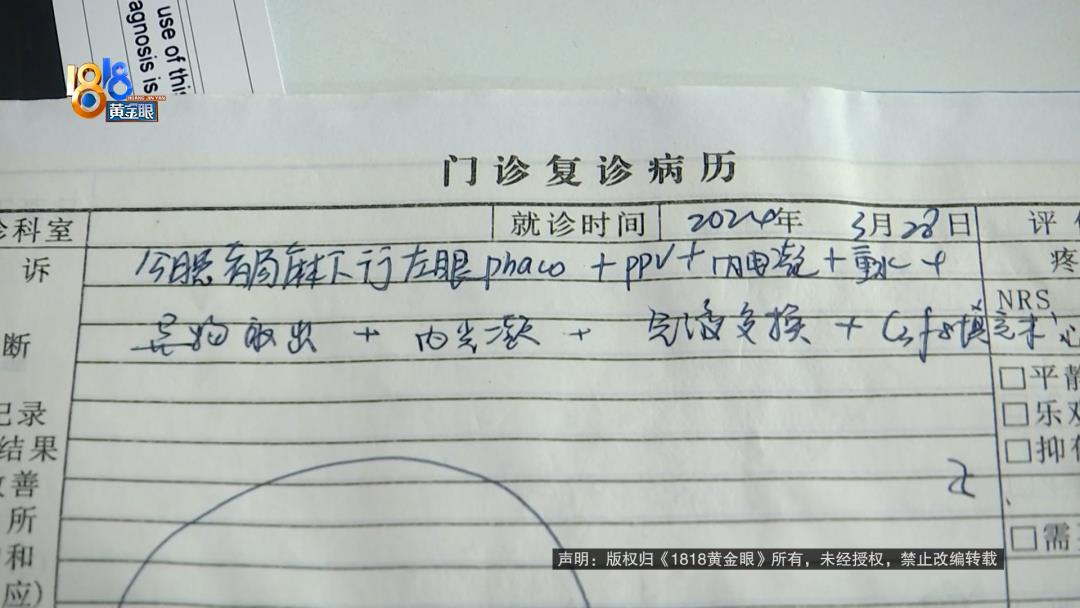 use of this
agnosis is
1818
黄金眼
门诊复诊病历
诊科室 就诊时间 2024年 3月28日 评
诉 今日患者局麻下行左眼phaco+PPV+内电凝+重水+ 疼
异物取出+内光凝+气液交换+C3F8填充术 NRS
断 心
□平静
记录 □乐观
结果 □抑
改善
所 左
和 □需
应)
声明：版权归《1818黄金眼》所有，未经授权，禁止改编转载